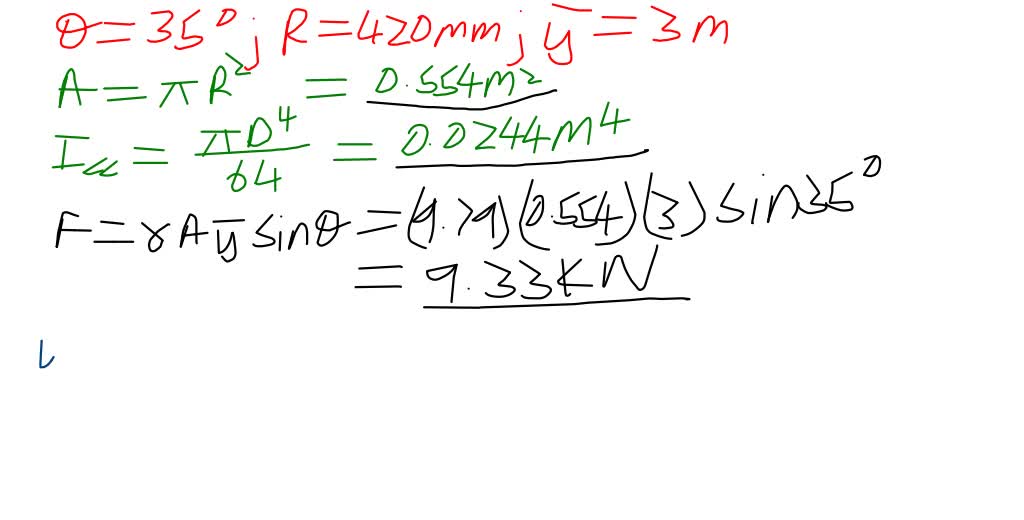 θ = 35°; R = 420mm; ȳ = 3m
A = πR² = 0.554m²
I = πD⁴/64 = 0.0244m⁴
F = γAȳ sinθ = (9.79)(0.554)(3) sin35°
= 9.33KN